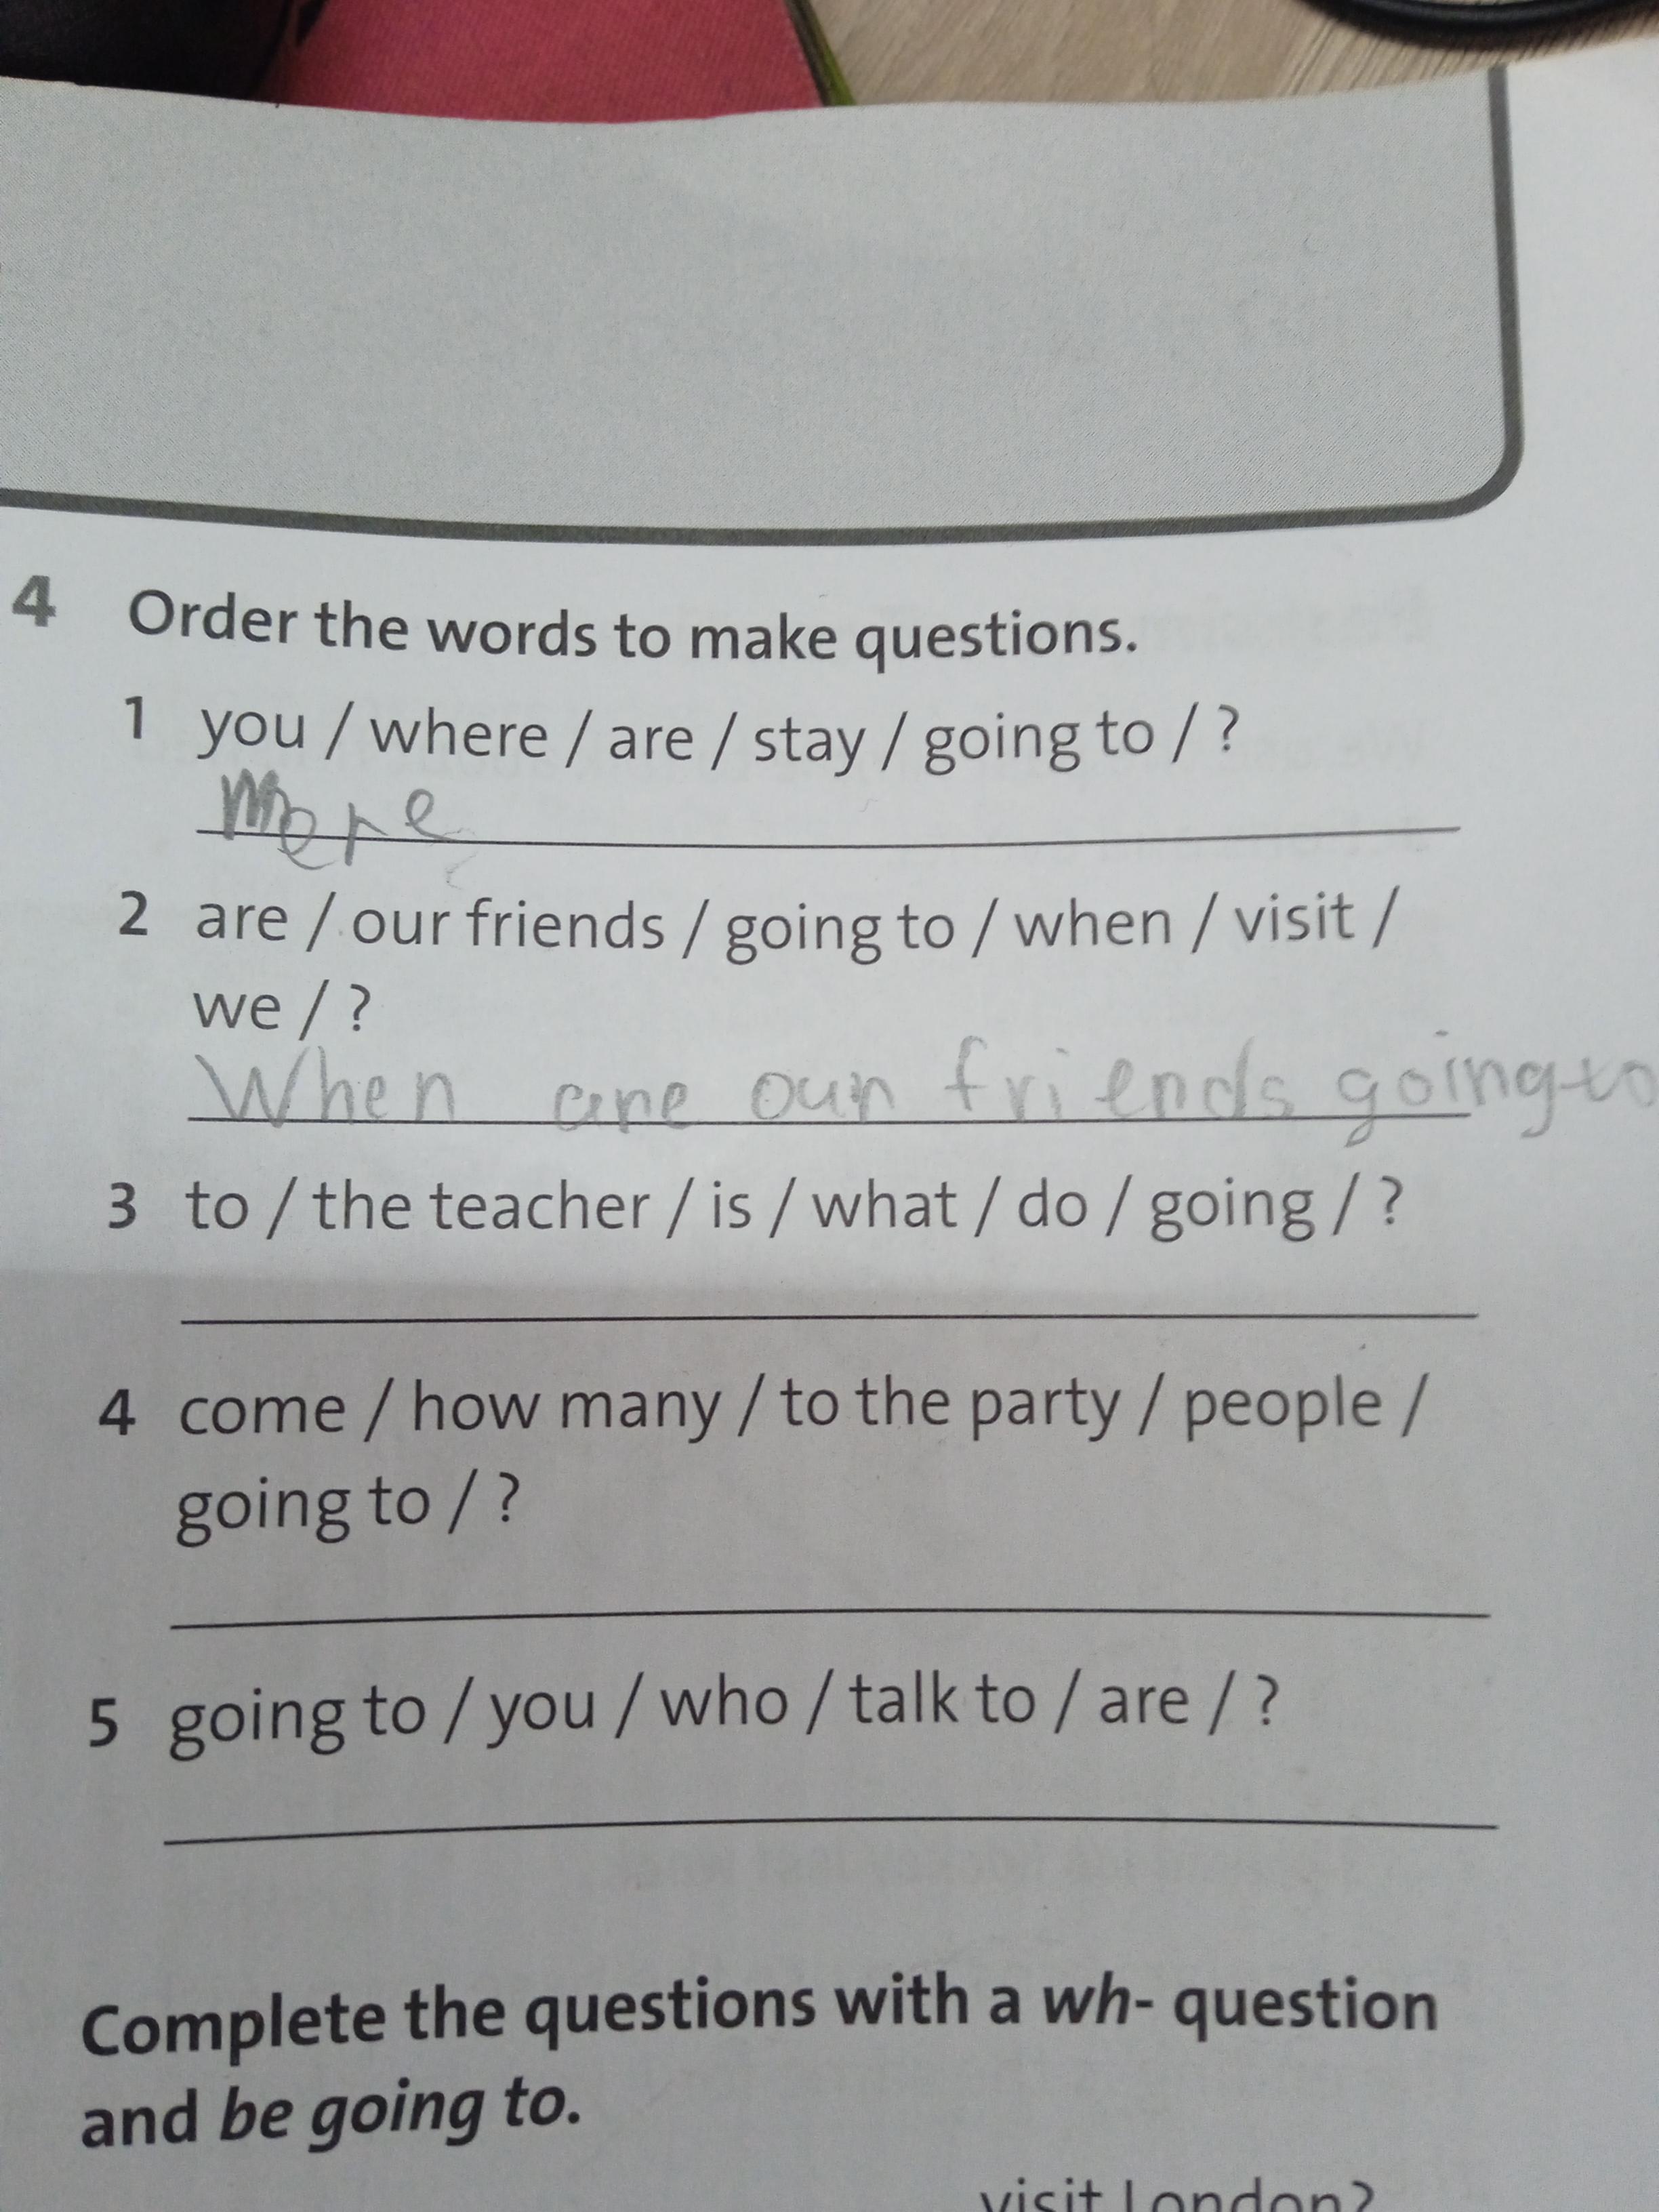 4 Order the words to make questions.
1 you / where / are / stay / going to / ?
2 are / our friends / going to / when / visit /
we / ?
When are our friends going to
3 to / the teacher / is / what / do / going / ?
4 come / how many / to the party / people /
going to / ?
5 going to / you / who / talk to / are / ?
Complete the questions with a wh- question
and be going to.
visit London?